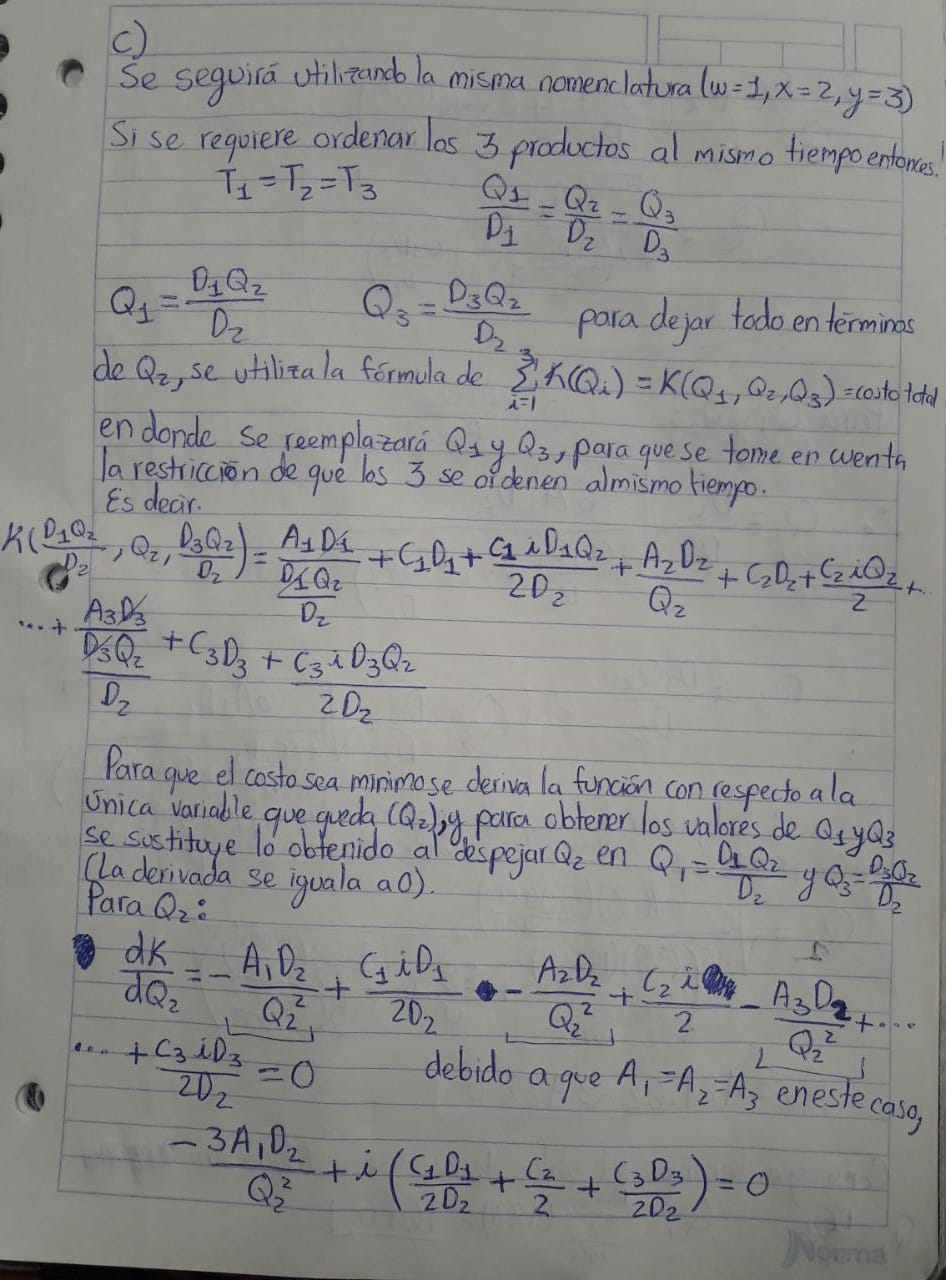 c)
Se seguirá utilizando la misma nomenclatura (w=1, x=2, y=3)
Si se requiere ordenar los 3 productos al mismo tiempo entonces:
T₁=T₂=T₃ Q₁/D₁ = Q₂/D₂ = Q₃/D₃
Q₁ = D₁Q₂/D₂ Q₃ = D₃Q₂/D₂ para dejar todo en términos
de Q₂, se utiliza la fórmula de Σ_{i=1}^{3} K(Qᵢ) = K(Q₁, Q₂, Q₃) = costo total
en donde se reemplazará Q₁ y Q₃, para que se tome en cuenta
la restricción de que los 3 se ordenen al mismo tiempo.
Es decir.
K(D₁Q₂/D₂, Q₂, D₃Q₂/D₂) = A₁D₁/(D₁Q₂/D₂) + C₁D₁ + C₁iD₁Q₂/2D₂ + A₂D₂/Q₂ + C₂D₂ + C₂iQ₂/2 + ...
... + A₃D₃/(D₃Q₂/D₂) + C₃D₃ + C₃iD₃Q₂/2D₂
Para que el costo sea mínimo se deriva la función con respecto a la
única variable que queda (Q₂), y para obtener los valores de Q₁ y Q₃
se sustituye lo obtenido al despejar Q₂ en Q₁ = D₁Q₂/D₂ y Q₃ = D₃Q₂/D₂
(La derivada se iguala a 0).
Para Q₂:
dK/dQ₂ = - A₁D₂/Q₂² + C₁iD₁/2D₂ - A₂D₂/Q₂² + C₂i/2 - A₃D₂/Q₂² + ...
.... + C₃iD₃/2D₂ = 0 debido a que A₁=A₂=A₃ en este caso,
-3A₁D₂/Q₂² + i (C₁D₁/2D₂ + C₂/2 + C₃D₃/2D₂) = 0
Norma